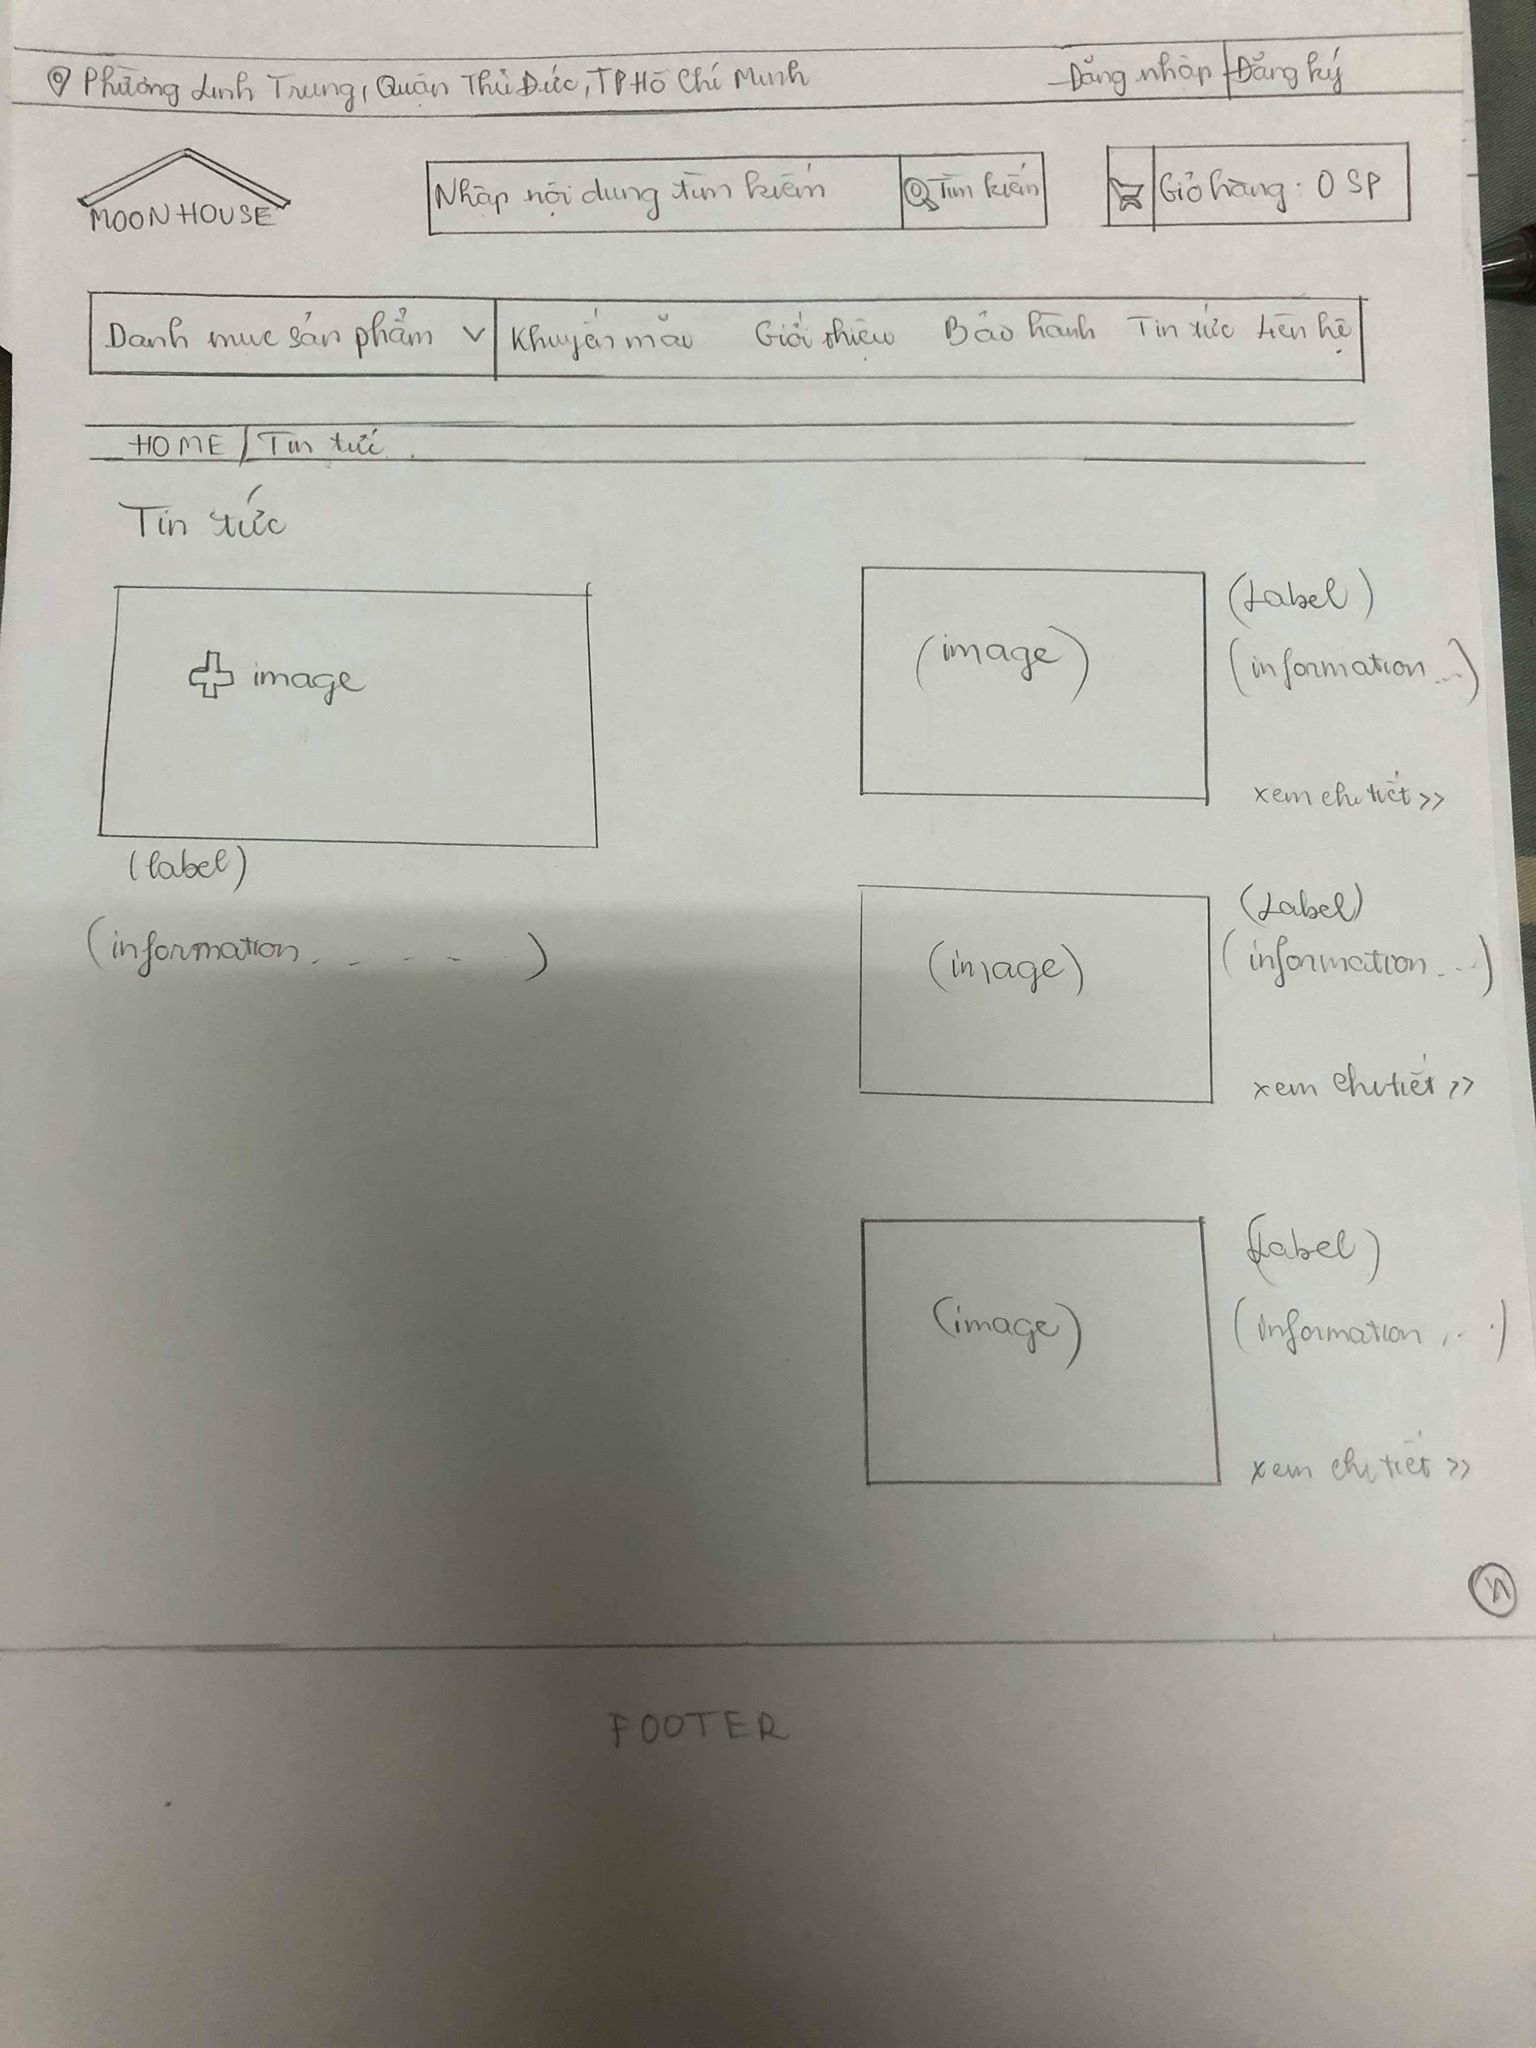 Phường Linh Trung, Quận Thủ Đức, TP Hồ Chí Minh
Đăng nhập | Đăng ký
MOON HOUSE
Nhập nội dung tìm kiếm
Tìm kiếm
Giỏ hàng: 0 SP
Danh mục sản phẩm
Khuyến mãi Giới thiệu Bảo hành Tin tức Liên hệ
HOME / Tin tức
Tin tức
image
(label)
(information.....)
(image)
(Label)
(information...)
xem chi tiết >>
(image)
(Label)
(information...)
xem chi tiết >>
(image)
(Label)
(information...)
xem chi tiết >>
FOOTER